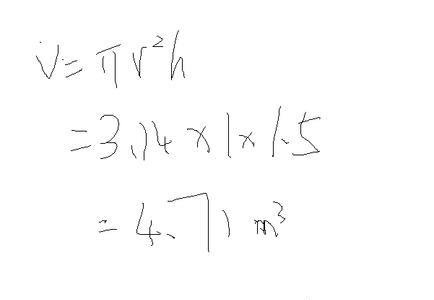 V = πr²h
= 3.14 × 1 × 1.5
= 4.71 m³